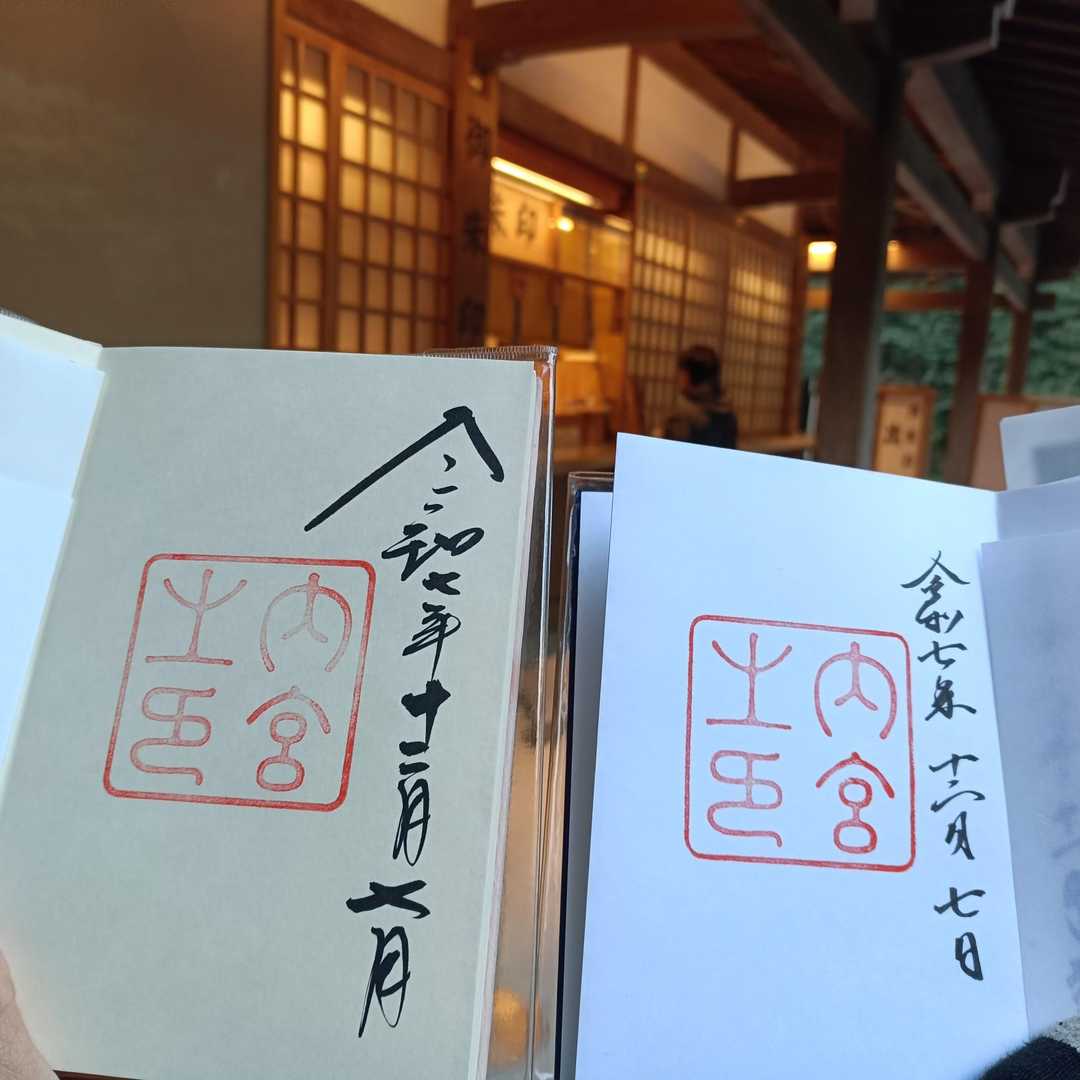 御朱印
朱印
令和七年十二月七日
内宮
之印
令和七年十二月七日
内宮
之印